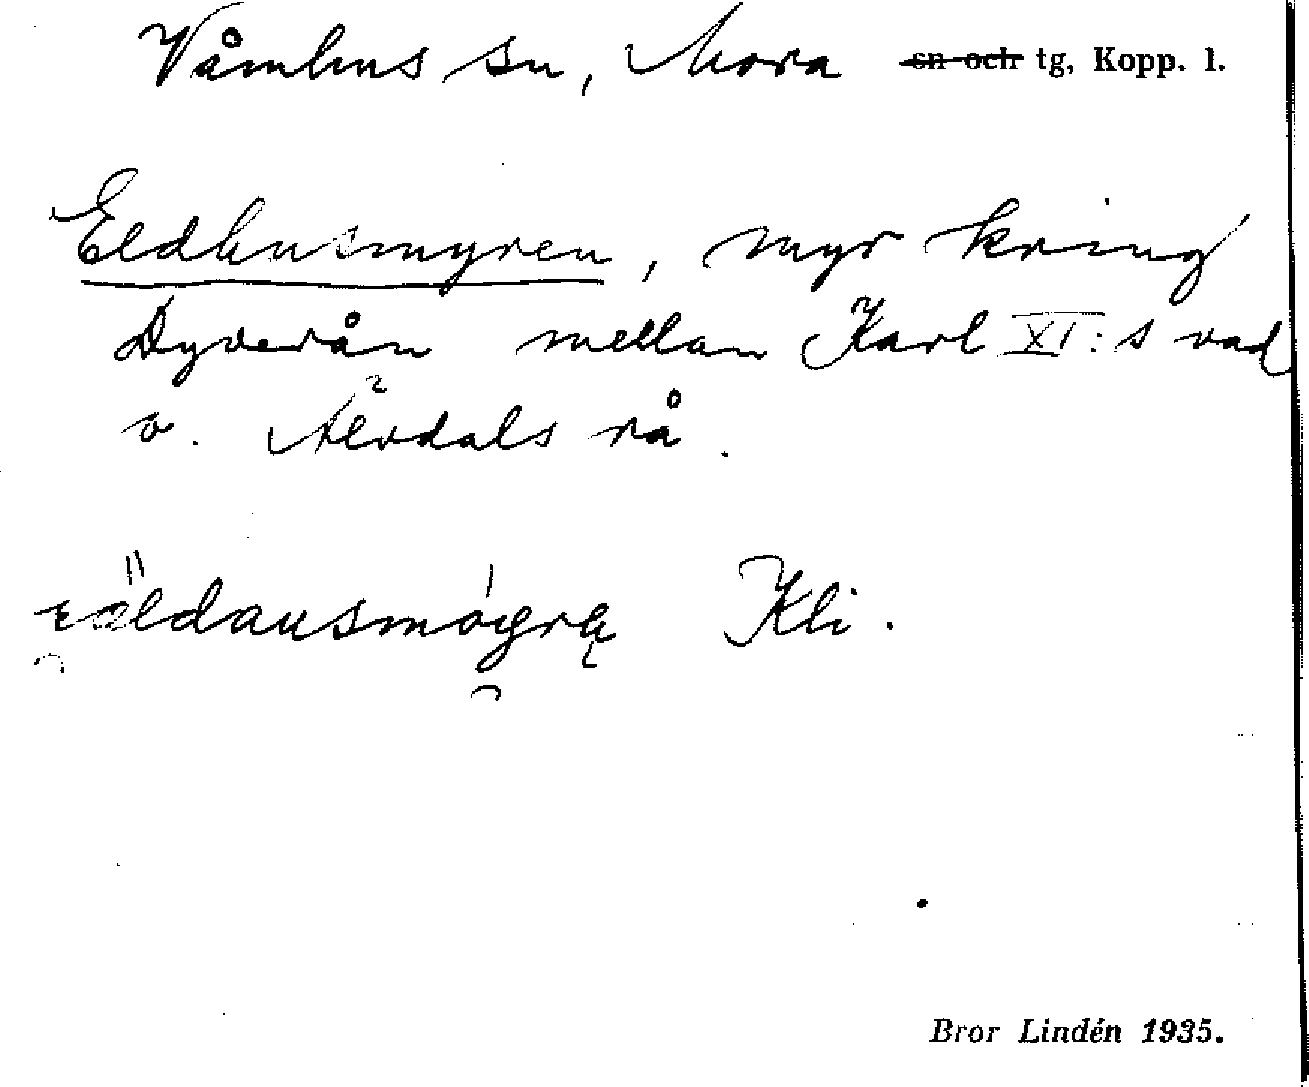 Våmhus sn, Mora sn och tg, Kopp. l.
Eldhusmyren, myr kring
Dyverån mellan Karl XI:s vad
o. Älvdals rå.
Kli.
Bror Lindén 1935.